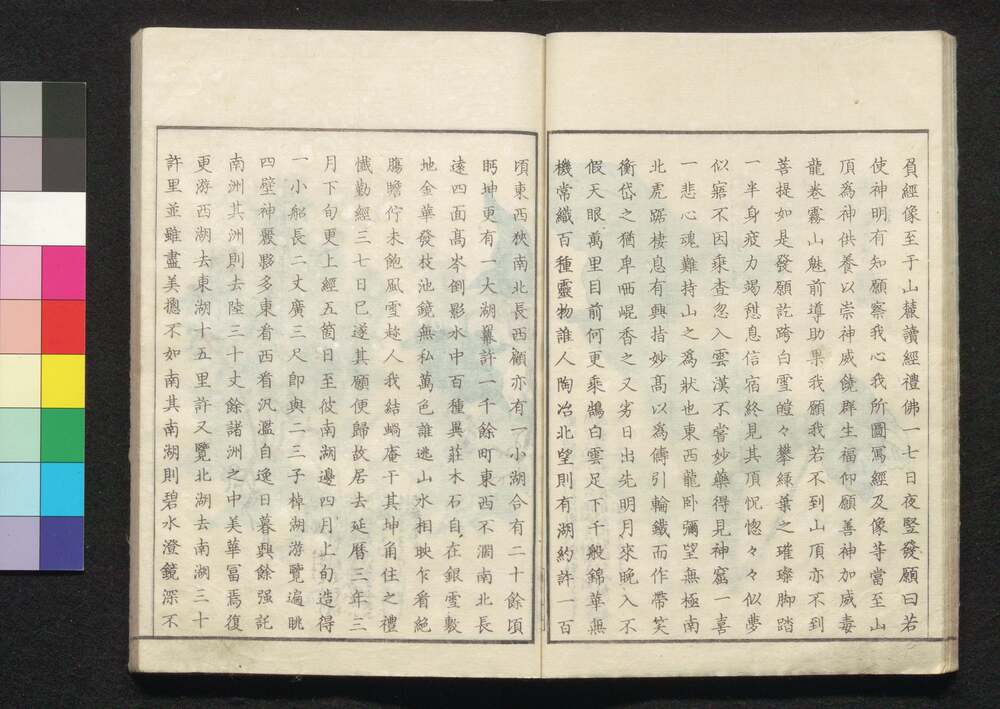 負經像至于山麓讀經禮佛一七日夜竪發願曰若
使神明有知願察我心我所圖寫經及像等當至山
頂爲神供養以崇神威饒群生福仰願善神加威毒
龍卷霧山魅前導助果我願我若不到山頂亦不到
菩提如是發願訖跨白雪皚々攀緑葉之璀璨脚踏
一半身疲力竭憇息信宿終見其頂怳惚々々似夢
似寤不因乘査忽入雲漢不甞妙藥得見神窟一喜
一悲心魂難持山之爲狀也東西龍卧彌望無極南
北虎踞棲息有興指妙髙以爲儔引輪鐵而作帶笑
衡岱之猶卑哂崐香之又劣日出先明月來晚入不
假天眼萬里目前何更乘鵠白雲足下千般錦華無
機常織百種靈物誰人陶冶北望則有湖約許一百
頃東西狹南北長西顧亦有一小湖合有二十餘頃
眄坤更有一大湖羃許一千餘町東西不濶南北長
遠四面髙岑倒影水中百種異莊木石自在銀雪敷
地金華發枝池鏡無私萬色誰逃山水相映乍看絶
膓瞻佇未飽風雪趁人我結蝸庵于其坤角住之禮
懺勤經三七日已遂其願便歸故居去延曆三年三
月下旬更上經五箇日至彼南湖邊四月上旬造得
一小舩長二丈廣三尺卽與二三子棹湖游覽遍眺
四壁神麗夥多東看西看汎濫自逸日暮興餘强託
南洲其洲則去陸三十丈餘諸洲之中美華冨焉復
更游西湖去東湖十五里許又覽北湖去南湖三十
許里並雖盡美揔不如南其南湖則碧水澄鏡深不